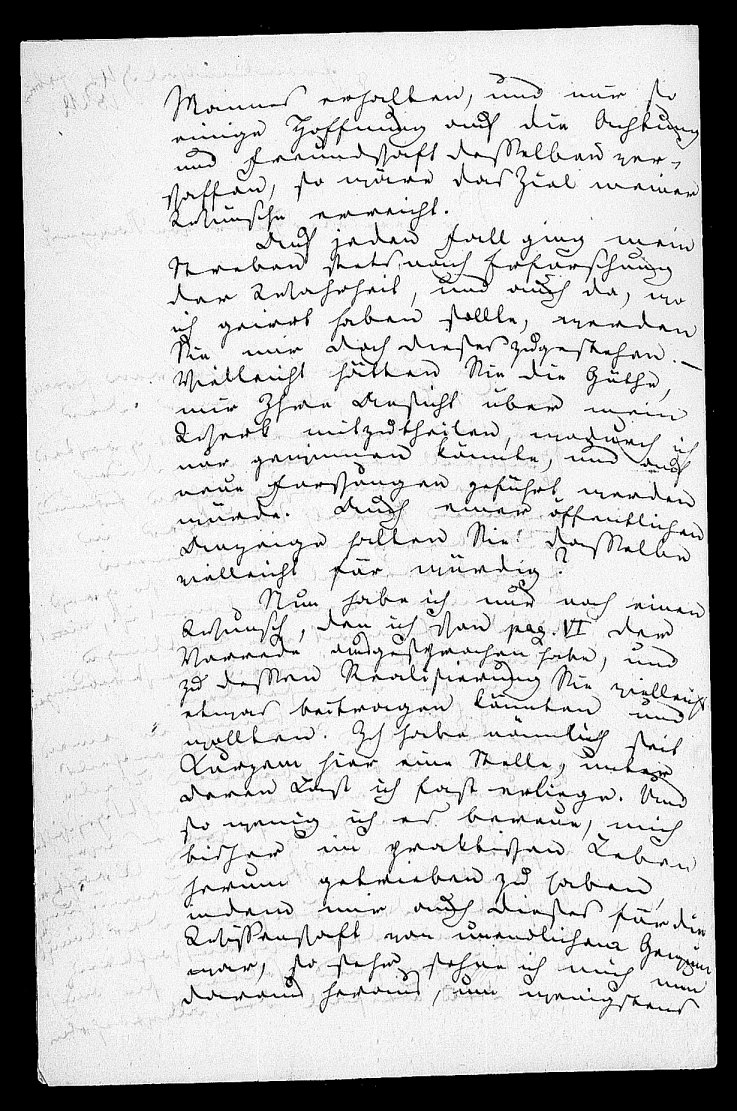 Mannes erhalten, und mir so
einige Hoffnung auf die Achtung
und Freundschaft desselben ver-
schaffen, so wäre das Ziel meiner
Wünsche erreicht.
Auf jeden Fall ging mein
Streben stets nach Erforschung
der Wahrheit, und auch da, wo
ich geirrt haben sollte, werden
Sie mir doch dieses zugestehen. —
Vielleicht hätten Sie die Güthe,
mir Ihre Ansicht über mein
Werk mitzutheilen, wodurch ich
nur gewinnen könnte, und auf
neue Forschungen geführt werden
würde. Auch einer öffentlichen
Anzeige halten Sie dasselbe
vielleicht für würdig?
Nun habe ich nur noch einen
Wunsch, den ich schon pag. VI der
Vorrede ausgesprochen habe, und
zu dessen Realisierung Sie vielleicht
etwas beitragen könnten und
wollten. Ich habe nämlich seit
Kurzem hier eine Stelle, unter
deren Last ich fast erliege. Und
so wenig ich es bereue, mich
bisher im praktischen Leben
herum getrieben zu haben,
indem mir auch dieses für die
Wissenschaft von unendlichem Gewinn
war, so sehr sehne ich mich nun
daraus heraus, um wenigstens